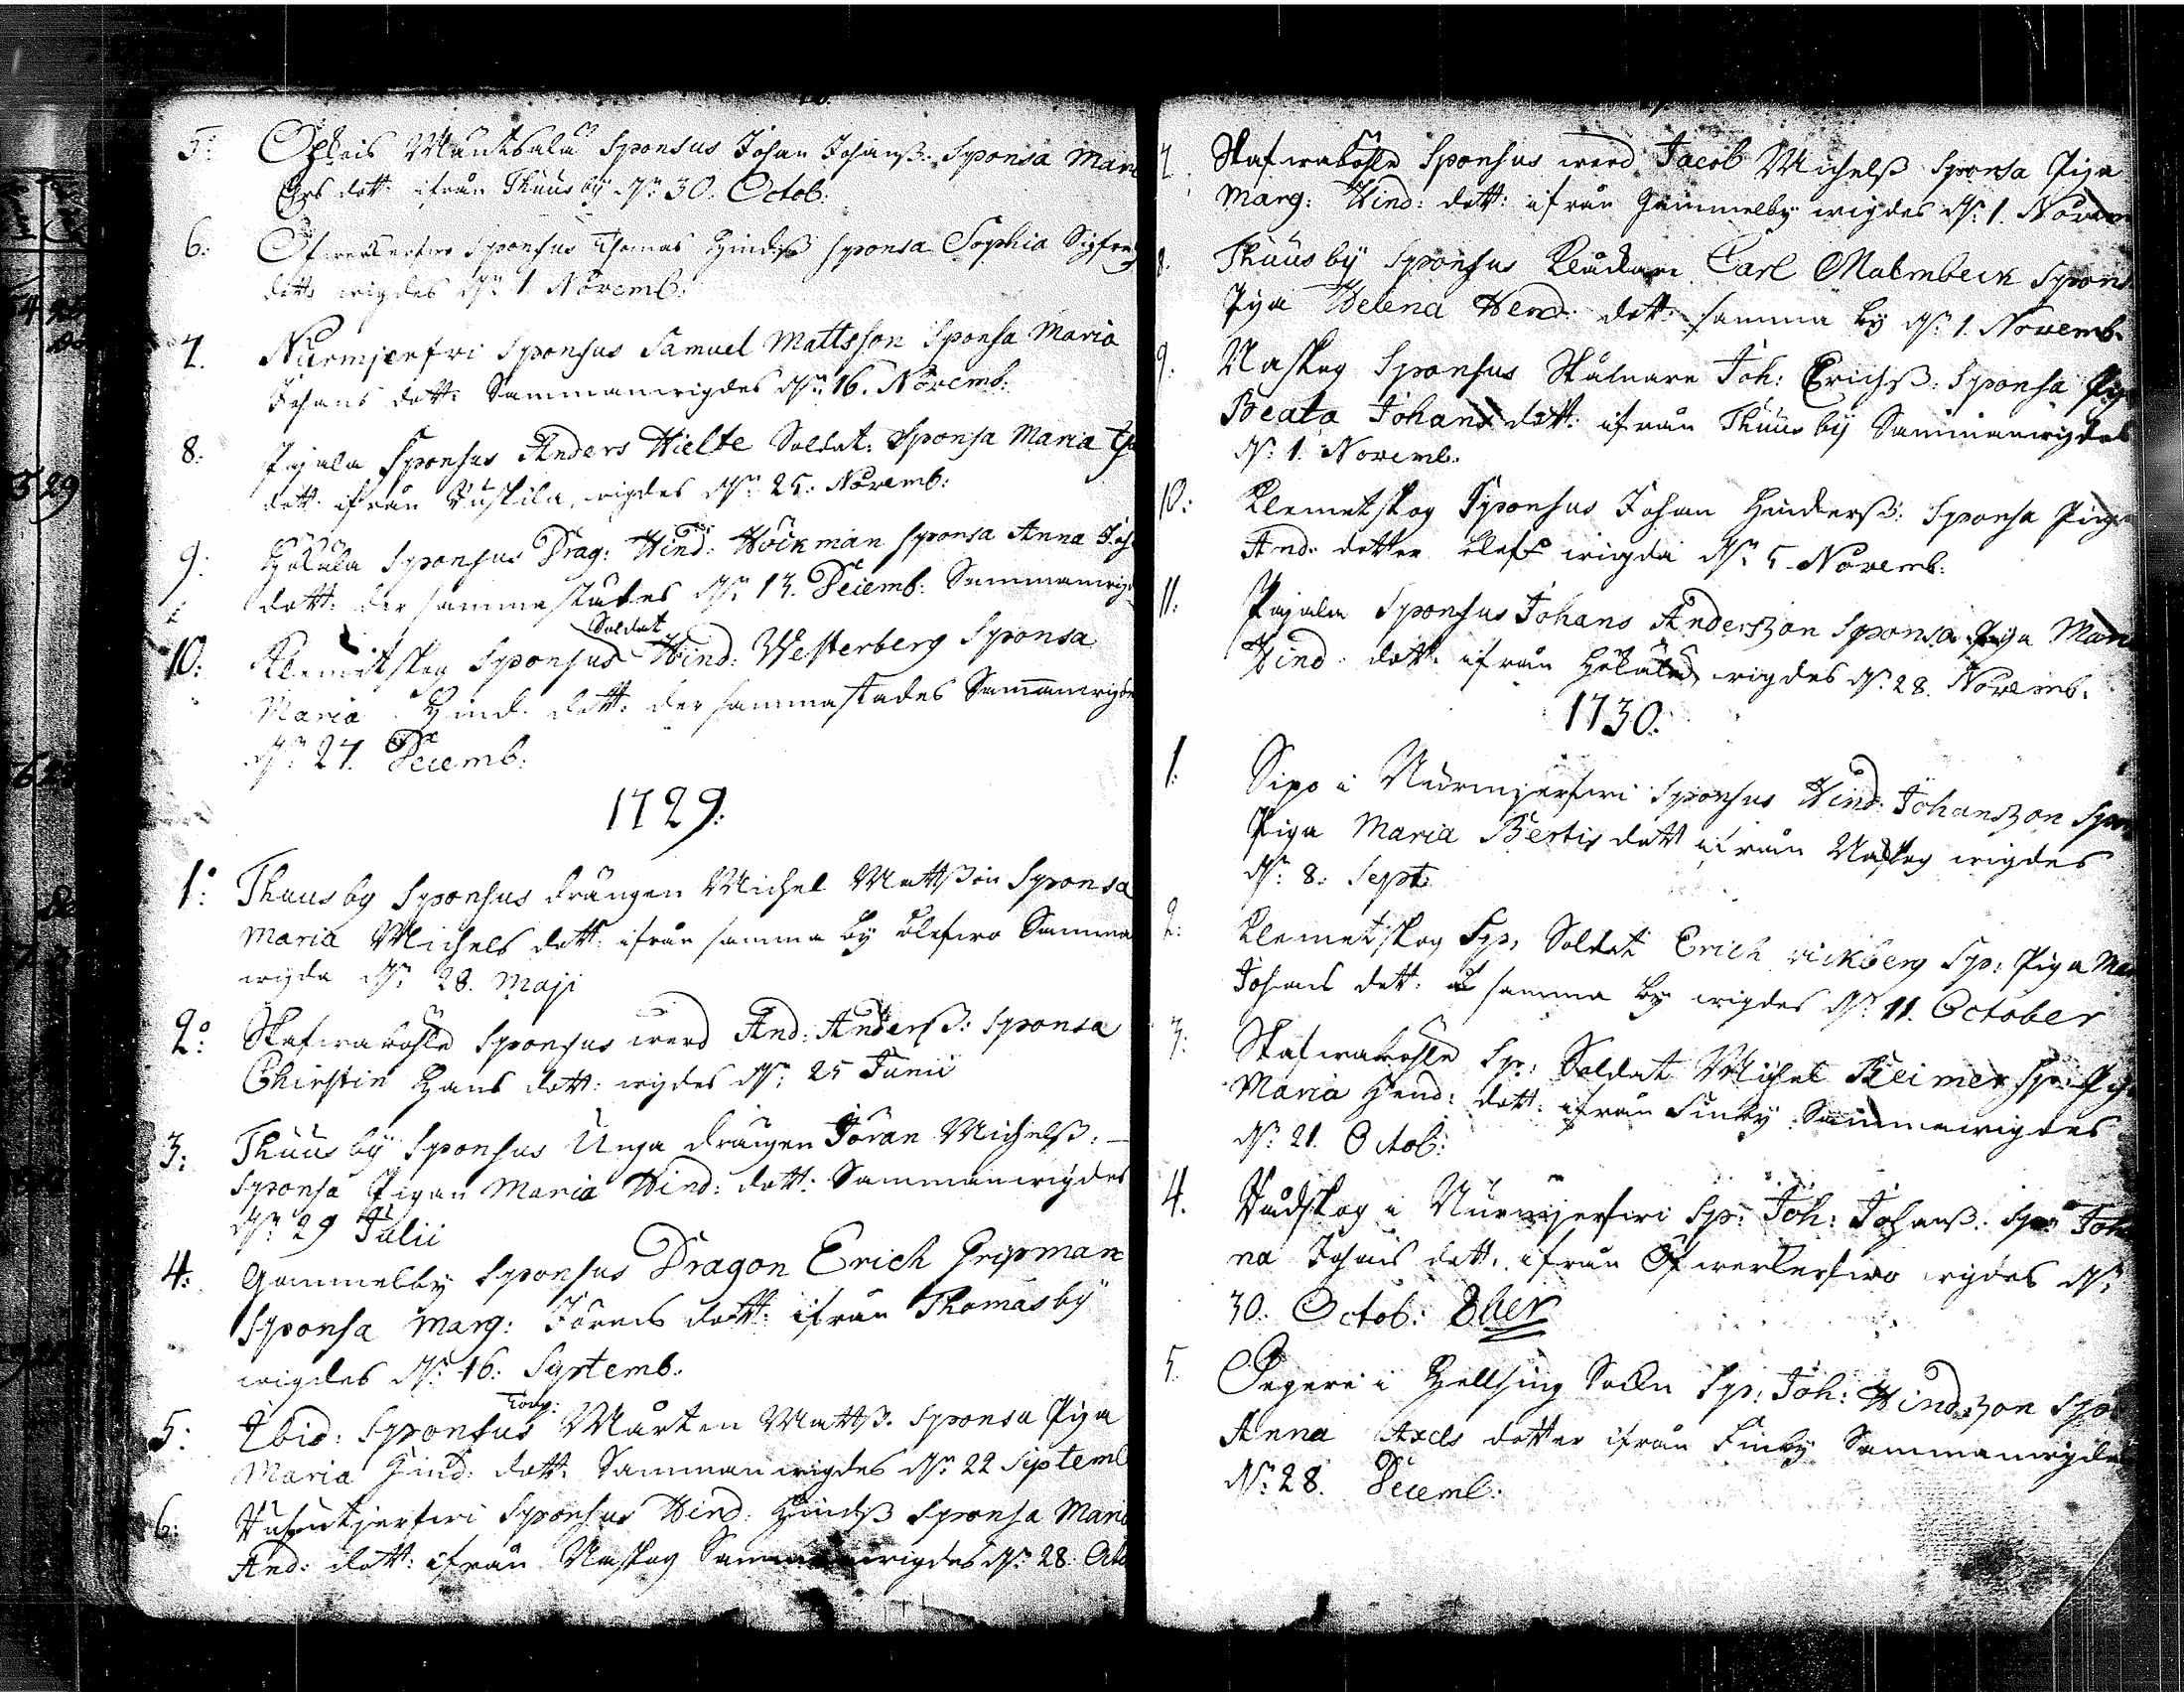 5. Opleis Mänksala Sponsus Johan Johanß: Sponsa Mari
Ers dott: ifrån Thuusby d. 30. Octob:
6: Öfwerkerfwo Sponsus Thomas Hindß Sponsa Sophia Sigfre
dott: wigdes d. 1 Novemb:
7. Nurmjerfvi Sponsus Samuel Mattsson Sponsa Maria
Johans dott: Sammanwigdes d. 16. Novemb:
8: Pajala Sponsus Anders Hielte Soldat: Sponsa Maria
dott: ifrån wigdes d. 25: Novemb:
9: Hökula Sponsus Drag: Hind: Höckman Sponsa Anna Joh
dott: der sammastädes d. 13. Decemb: Sammanwigd
10: Klemetskog Sponsus Soldat Hind: Westerberg Sponsa
Maria Hind. dott: der sammastädes Sammanwigde
d. 27. Decemb:
1729:
1: Thuusby Sponsus drängen Michel Mattßon Sponsa
Maria Michels dott: ifrån samma by blefwo Samma
wigda d. 28. Maji
2: Skafwaböhle Sponsus werd And: Anderß: Sponsa
Christin Hans dott: wigdes d. 25 Junii
3: Thuusby Sponsus Unga drängen Jöran Michelß: –
Sponsa Pigan Maria Hind: dott: Sammanwigdes
d. 29 Julii
4: Gammelby Sponsus Dragon Erich Gripman
Sponsa Marg: Jörens dott: ifrån Thomasby
wigdes d. 16: Septemb:
5: Ibid: Sponsus Torp: Mårten Mattß. Sponsa Piga
Maria Hind: dott: Sammanwigdes d. 22 Septemb
6: Sponsus Hind: Hindß Sponsa Mari
And: dott: ifrån Naskog Sammanwigdes d. 28. Octo
7. Skafwaböhle Sponsus werd Jacob Michelß Sponsa Piga
Marg: Hind: dott: ifrån Gammelby wigdes d. 1. Novem
8. Thuusby Sponsus Klåckare Carl Malmbeck Spons
Piga Helena Hend: dott: samma by d. 1. Novemb.
9. Naskog Sponsus Joh: Erichß: Sponsa Pig
Beata Johans dott: ifrån Thuusby Sammanwigdes
d. 1. Novemb:
10: Klemetskog Sponsus Johan Hinderß: Sponsa Piga
And: dotter blef wigda d. 5 Novemb:
11. Pajala Sponsus Johans Anderszon Sponsa Piga Mari
Hind: dott: ifrån Hökula wigdes d. 28. Novemb:
1730:
1. Sipo i Nurmjerfwi Sponsus Hind: Johanszon Spon
Piga Maria Bertis dott ifrån Naskog wigdes
d. 8: Sept:
2: Klemetskog Sp: Soldat Erich Sp: Piga Mar
Johans dott: samma by wigdes d. 11. October
3: Skafwaböhle Sp: Soldat Michel Reimer Sp: Pig
Maria Hend: dott: ifrån Finby Sammanwigdes
d. 21. Octob:
4. i Nurmjerfwi Sp: Joh: Johanß: Sp: Joha
na Johans dott: ifrån Öfwerkerfwo wigdes d.
30. Octob:
5. i Hellsing Sokn Sp: Joh: Hindszon Spo
Anna Axels dotter ifrån Finby Sammanwigde
d. 28. Decemb: